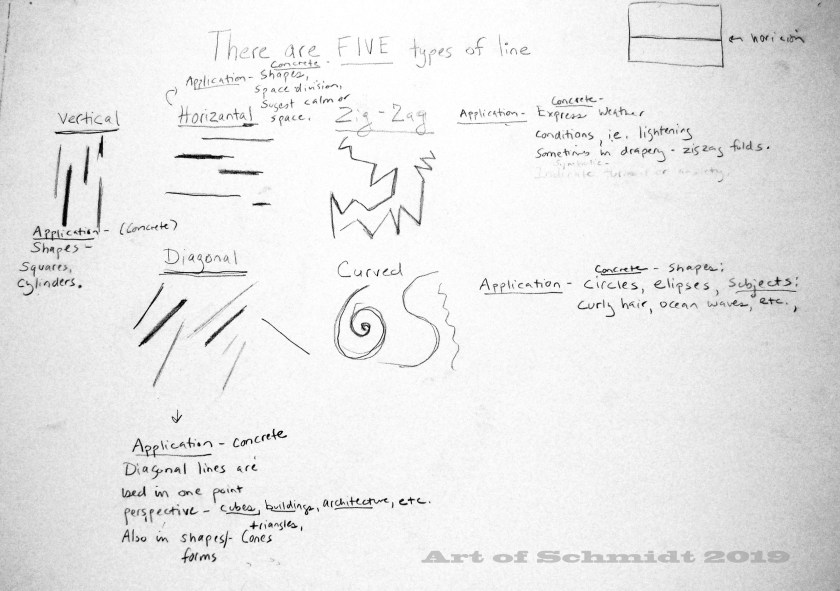 There are FIVE types of line
← horizion
Vertical
Application - (concrete)
Shapes -
Squares,
Cylinders.
Horizantal
Application - Concrete -
Shapes,
Space division,
Sugest calm or
space.
Zig - Zag
Application - Concrete -
Express Weather
conditions, i.e. lightening
Sometimes in drapery - zigzag folds.
Symbolic -
Indicate turmoil or anxiety.
Diagonal
↓
Application - Concrete
Diagonal lines are
used in one point
perspective - cubes, buildings, architecture, etc.
Also in shapes/ - Cones
+riangles,
forms
Curved
Application - Concrete - Shapes:
Circles, elipses, Subjects:
Curly hair, ocean waves, etc.,
Art of Schmidt 2019